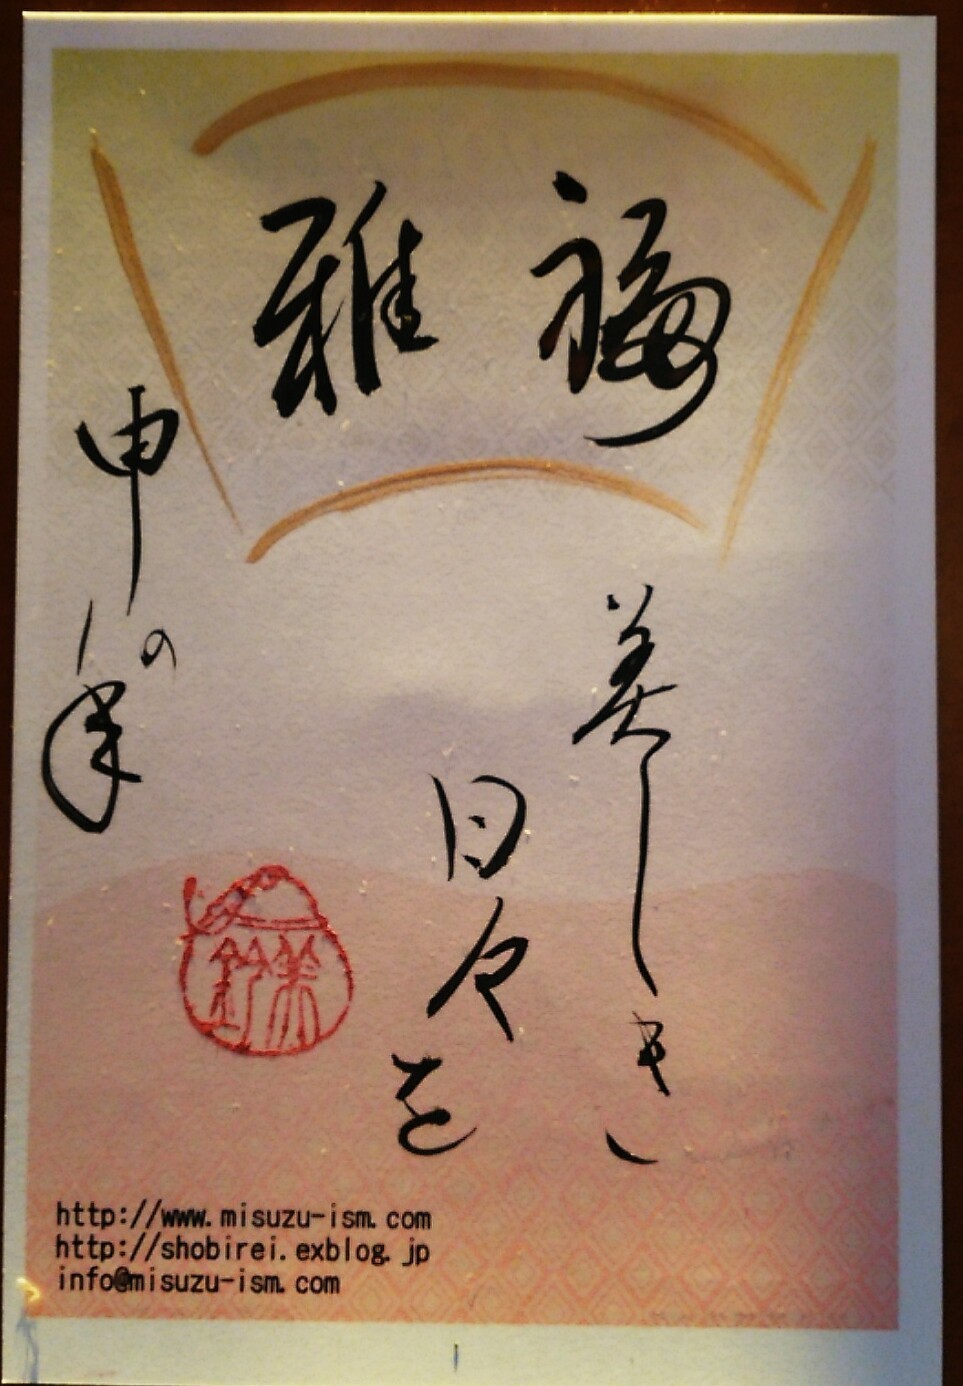 福雅
美しき
日々を
申の年
美鈴
http://www.misuzu-ism.com
http://shobirei.exblog.jp
info@misuzu-ism.com